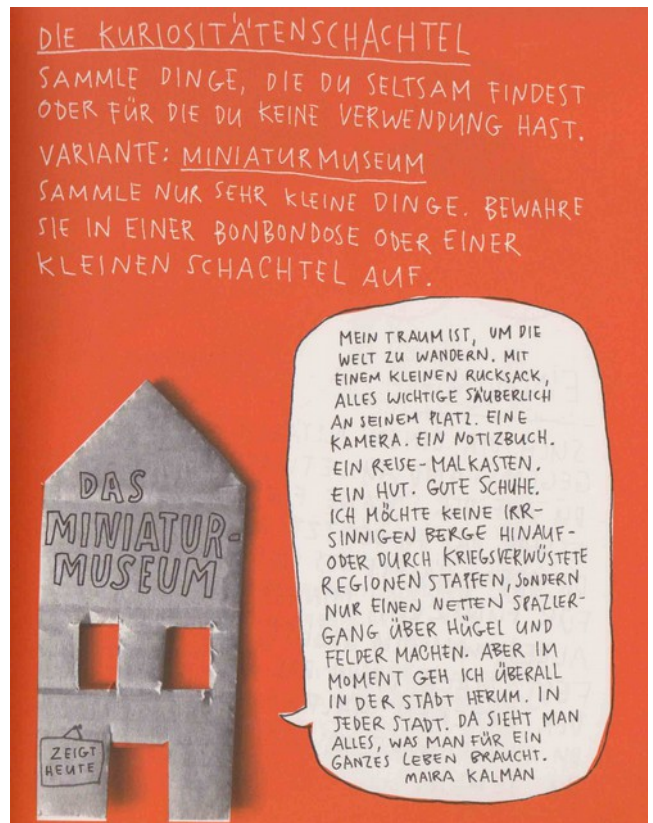 DIE KURIOSITÄTENSCHACHTEL
SAMMLE DINGE, DIE DU SELTSAM FINDEST
ODER FÜR DIE DU KEINE VERWENDUNG HAST.
VARIANTE: MINIATURMUSEUM
SAMMLE NUR SEHR KLEINE DINGE. BEWAHRE
SIE IN EINER BONBONDOSE ODER EINER
KLEINEN SCHACHTEL AUF.
MEIN TRAUM IST, UM DIE
WELT ZU WANDERN. MIT
EINEM KLEINEN RUCKSACK,
ALLES WICHTIGE SÄUBERLICH
AN SEINEM PLATZ. EINE
KAMERA. EIN NOTIZBUCH.
EIN REISE-MALKASTEN.
EIN HUT. GUTE SCHUHE.
ICH MÖCHTE KEINE IRR-
SINNIGEN BERGE HINAUF-
ODER DURCH KRIEGSVERWÜSTETE
REGIONEN STAPFEN, SONDERN
NUR EINEN NETTEN SPAZIER-
GANG ÜBER HÜGEL UND
FELDER MACHEN. ABER IM
MOMENT GEH ICH ÜBERALL
IN DER STADT HERUM. IN
JEDER STADT. DA SIEHT MAN
ALLES, WAS MAN FÜR EIN
GANZES LEBEN BRAUCHT.
MAIRA KALMAN
DAS
MINIATUR-
MUSEUM
ZEIGT
HEUTE